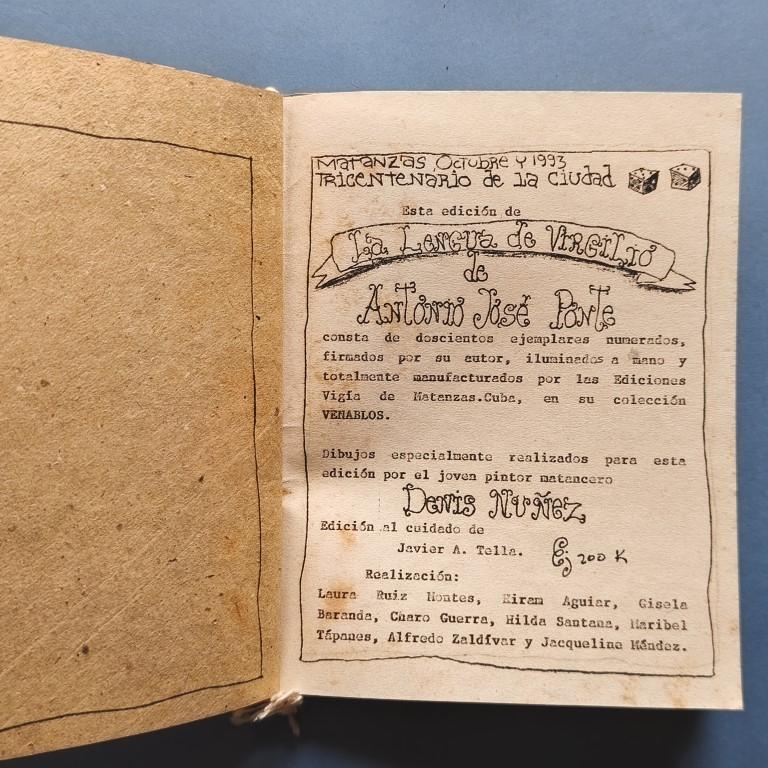 Matanzas Octubre y 1993
Tricentenario de la Ciudad
Esta edición de
La Lengua de Virgilio
de
Antonio José Ponte
consta de doscientos ejemplares numerados,
firmados por su autor, iluminados a mano y
totalmente manufacturados por las Ediciones
Vigía de Matanzas.Cuba, en su colección
VENABLOS.
Dibujos especialmente realizados para esta
edición por el joven pintor matancero
Denis Nuñez
Edición al cuidado de
Javier A. Tella.
Ej 200 K
Realización:
Laura Ruiz Montes, Kiram Aguiar, Gisela
Baranda, Charo Guerra, Hilda Santana, Maribel
Tápanes, Alfredo Zaldívar y Jacqueline Méndez.